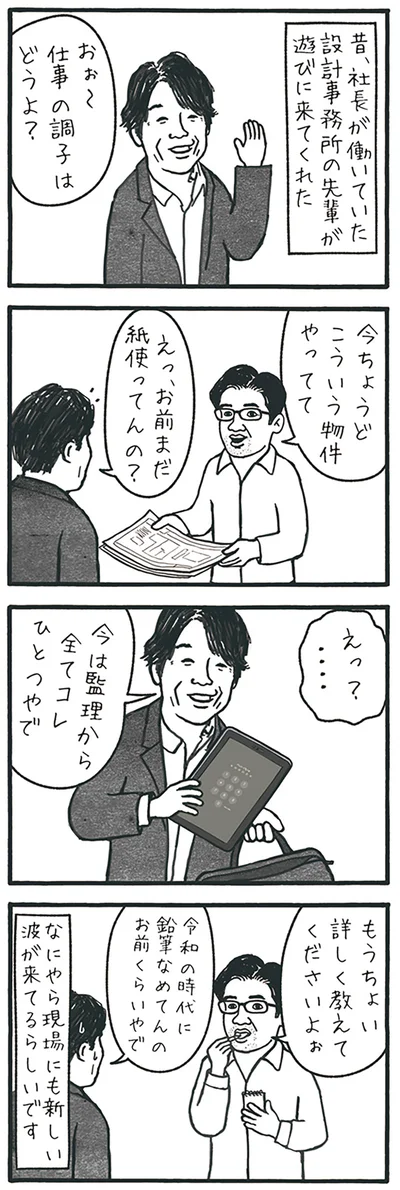 昔、社長が働いていた
設計事務所の先輩が
遊びに来てくれた
おぉ〜
仕事の調子は
どうよ?
今ちょうど
こういう物件
やってて
えっ、お前まだ
紙使ってんの?
えっ?
‥‥
今は監理から
全てコレ
ひとつやで
もうちょい
詳しく教えて
くださいよぉ
令和の時代に
鉛筆なめてんの
お前くらいやで
なにやら現場にも新しい
波が来てるらしいです